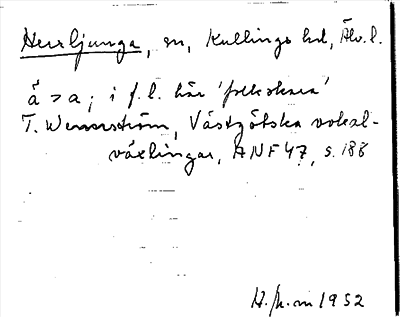 Herrljunga, sn, Kullings hd, Älv. l.
å > a ; i f. l. här 'folkskara'
T. Wennström, Västgötska vokal-
växlingar, ANF 47, s. 188
1952